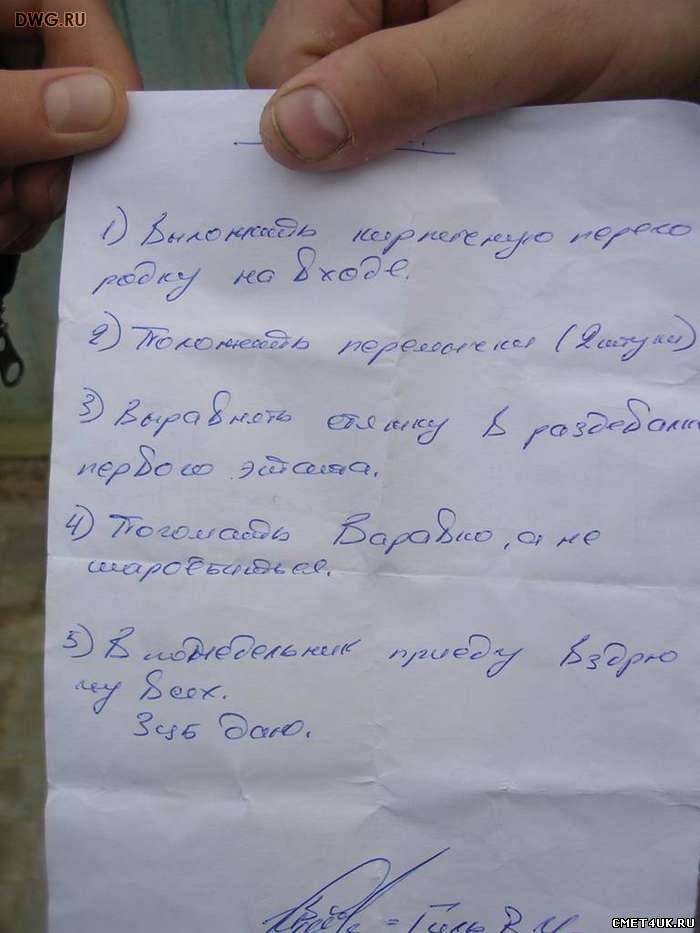 DWG.RU
1) Выложить кирпичную перего
родку на входе.
2) Положить перемычки (2 штуки)
3) Выравнять стяжку в раздевалки
первого этажа.
4) Погонять Варавко, а не
шароёбиться.
5) В понедельник приеду вздрю
чу всех.
Зуб даю.
= Гиль В.И.
СМЕТ4УК.RU